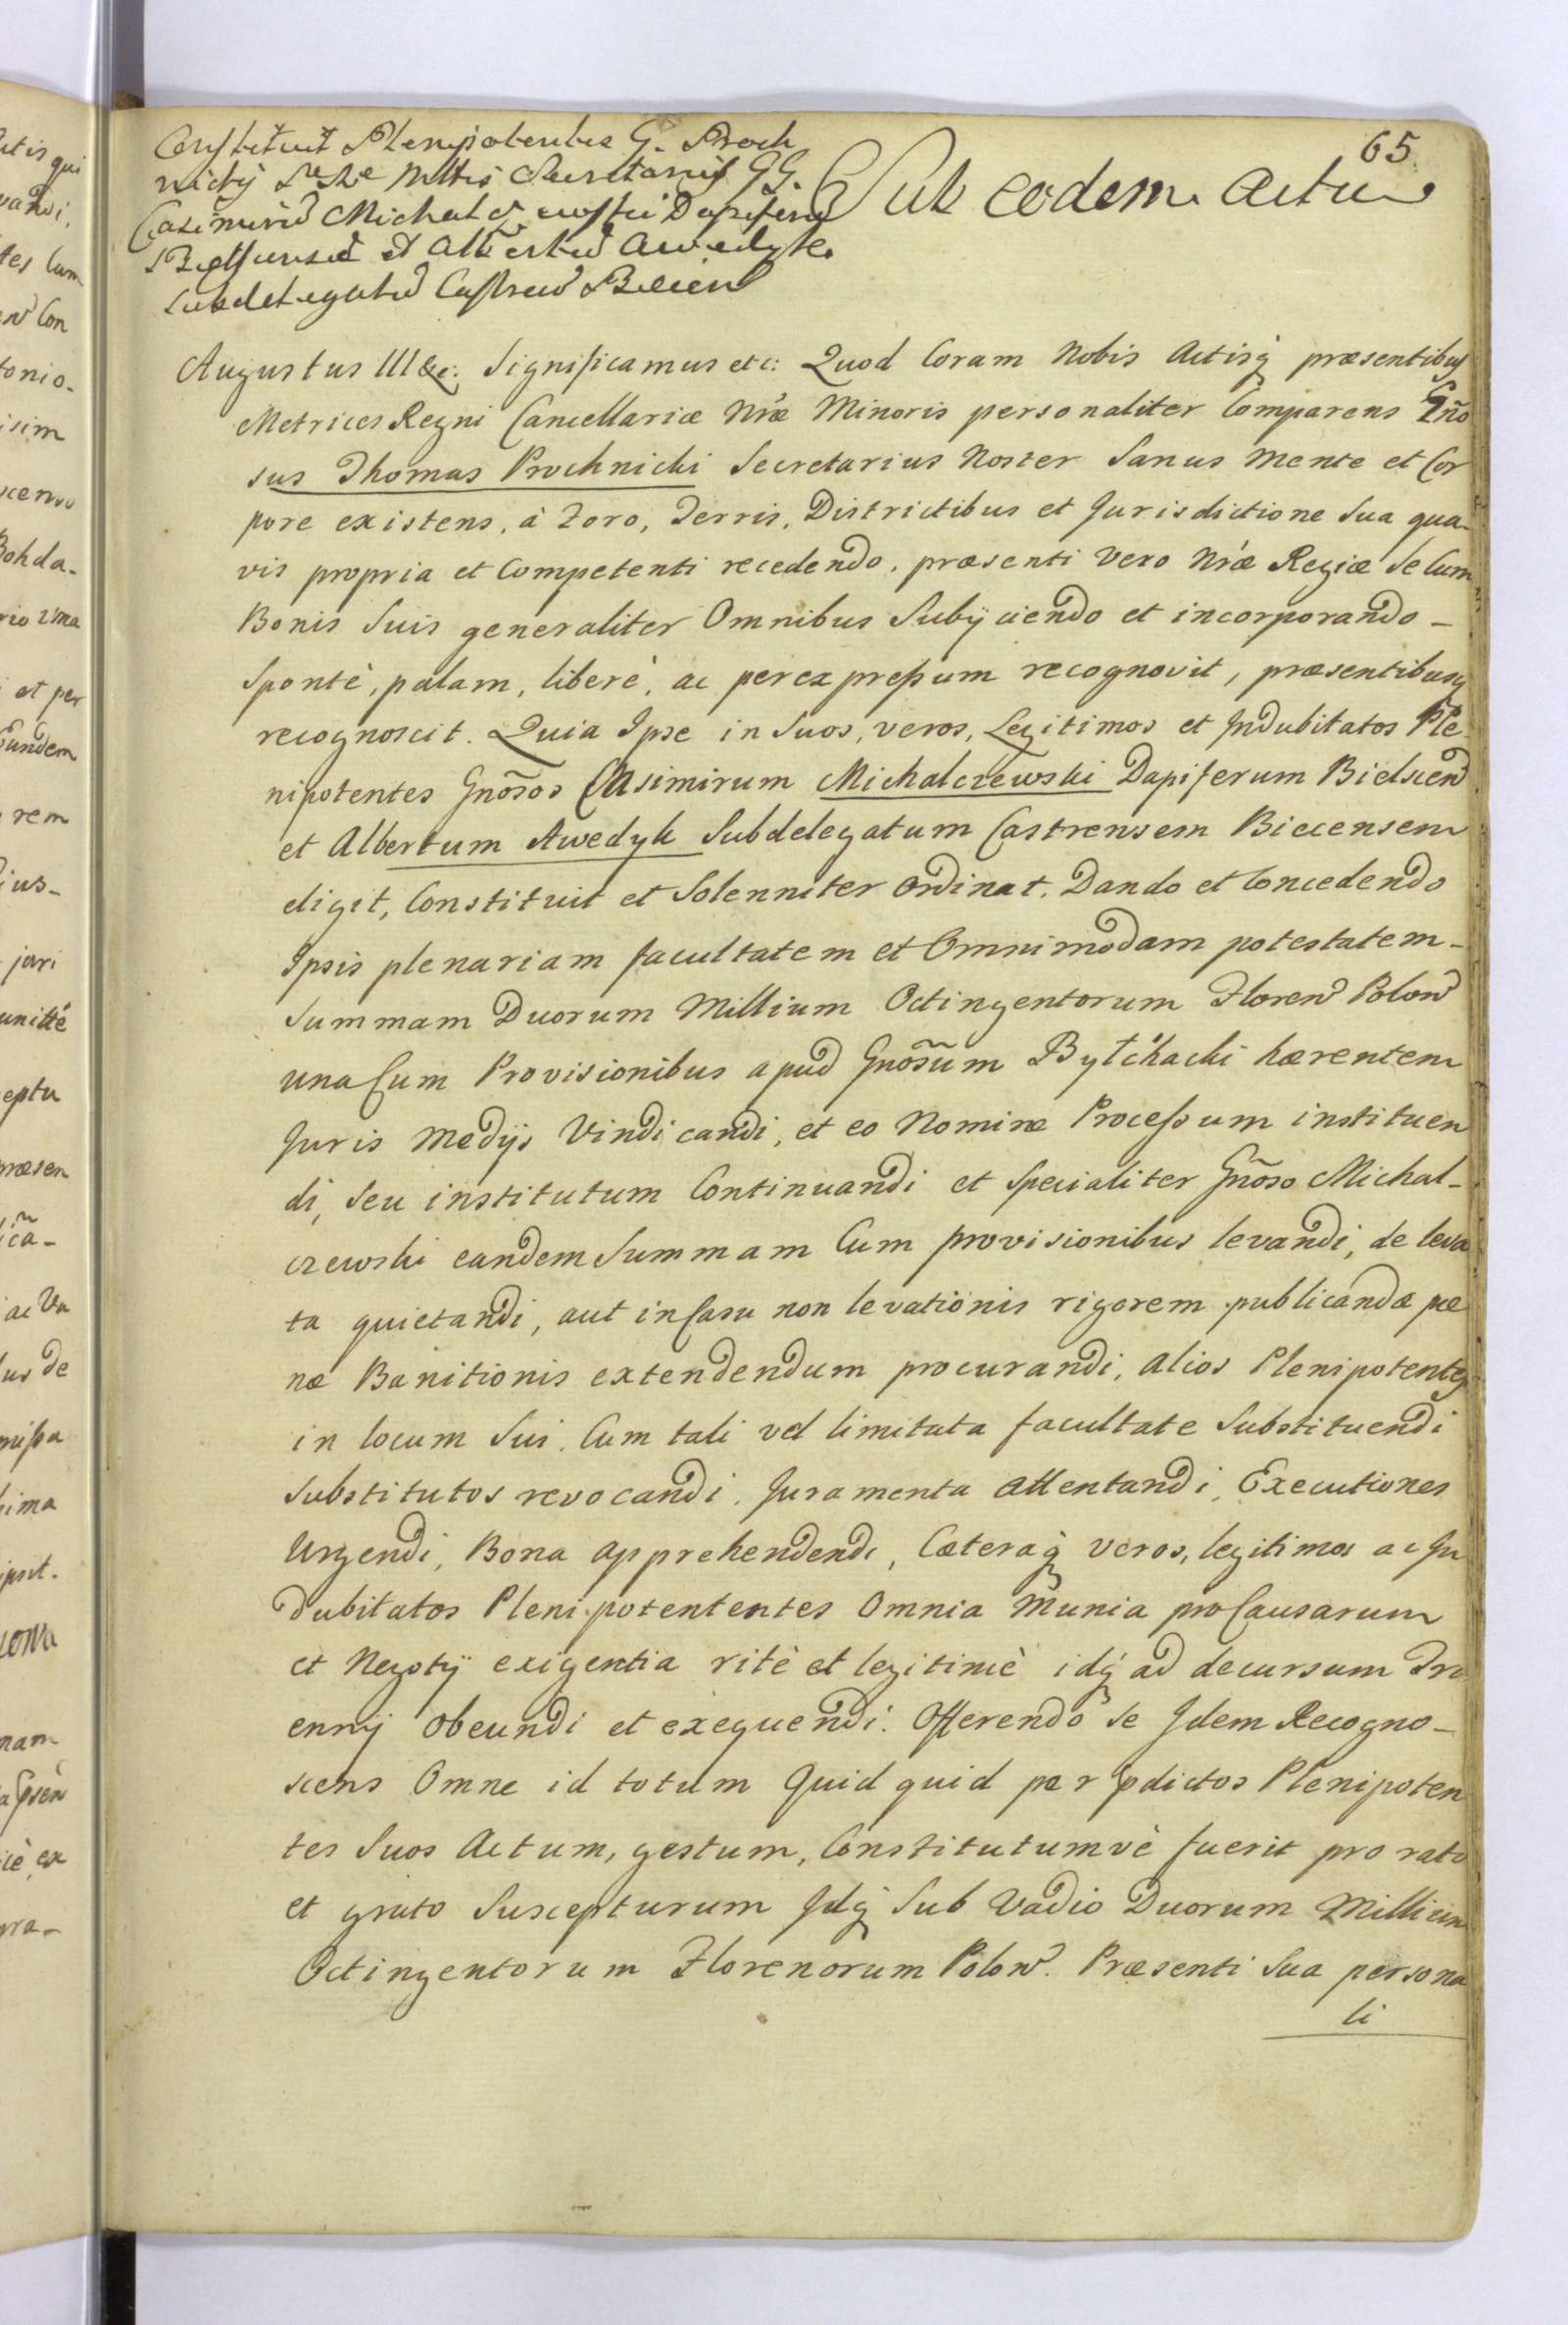 65.
Constituit Plenipotentes G. Proch
nickij Secretarius GG.
Casimirũ Michalczewski Dapiferũ
Bielscensẽ et Albertũ Awedyk
Subdelegatũ Castreñ Biecen
Sub eodem Actu
Augustus III &c: Significamus etc: Quod Coram Nobis Actisq̃ præsentibus
Metrices Regni Cancellariæ Nræ Minoris personaliter Comparens Gño
sus Thomas Prochnicki Secretarius Noster Sanus mente et Cor
pore existens, à Foro, Terris, Districtibus et Jurisdictione Sua qua-
vis propria et Competenti recedendo, præsenti vero Nræ Regiæ Se Cum
Bonis Suis generaliter Omnibus Subÿciendo et incorporando -
Spontè, palam, liberè, ac per expressum recognovit, præsentibusq̃
recognoscit. Quia Ipse in Suos, veros, Legitimos et Indubitatos Ple
nipotentes Gnõsos Casimirum Michalczewski Dapiferum Bielscen
et Albertum Awedyk Subdelegatum Castrensem Biecensem
eligit, Constituit et Solenniter Ordinat. Dando et Concedendo
Ipsis plenariam facultatem et Omnimodam potestatem -
Summam Duorum Millium Octingentorum Floren Polon
una Cum Provisionibus apud Gnõsum Bytchacki hærentem
Juris Medijs Vindicandi, et eo Nomine Processum instituen
di, Seu institutum Continuandi et Specialiter Gñoso Michal-
czewski eandem Summam Cum provisionibus levandi, de leva
ta quietandi, aut in Casu non levationis rigorem publicandæ pæ
næ Banitionis extendendum procurandi, alios Plenipotentes
in locum Sui Cum tali vel limitata facultate Substituendi
Substitutos revocandi. Juramenta attentandi, Executiones
Urgendi, Bona apprehendendi, Cæteraq̃ veros, legitimos ac In
dubitatos Plenipotententes Omnia Munia pro Causarum
et Negotÿ exigentia ritè et legitimè idq̃ ad decursum Tri
ennij Obeundi et exequendi. Offerendo Se Idem Recogno-
scens Omne id totum Quid quid per p̃dictos Plenipoten
tes Suos Actum, gestum, Constitutumvè fuerit pro rato
et grato Suscepturum Idq̃ Sub Vadio Duorum Millium
Octingentorum Florenorum Polon. Præsenti Sua persona
li